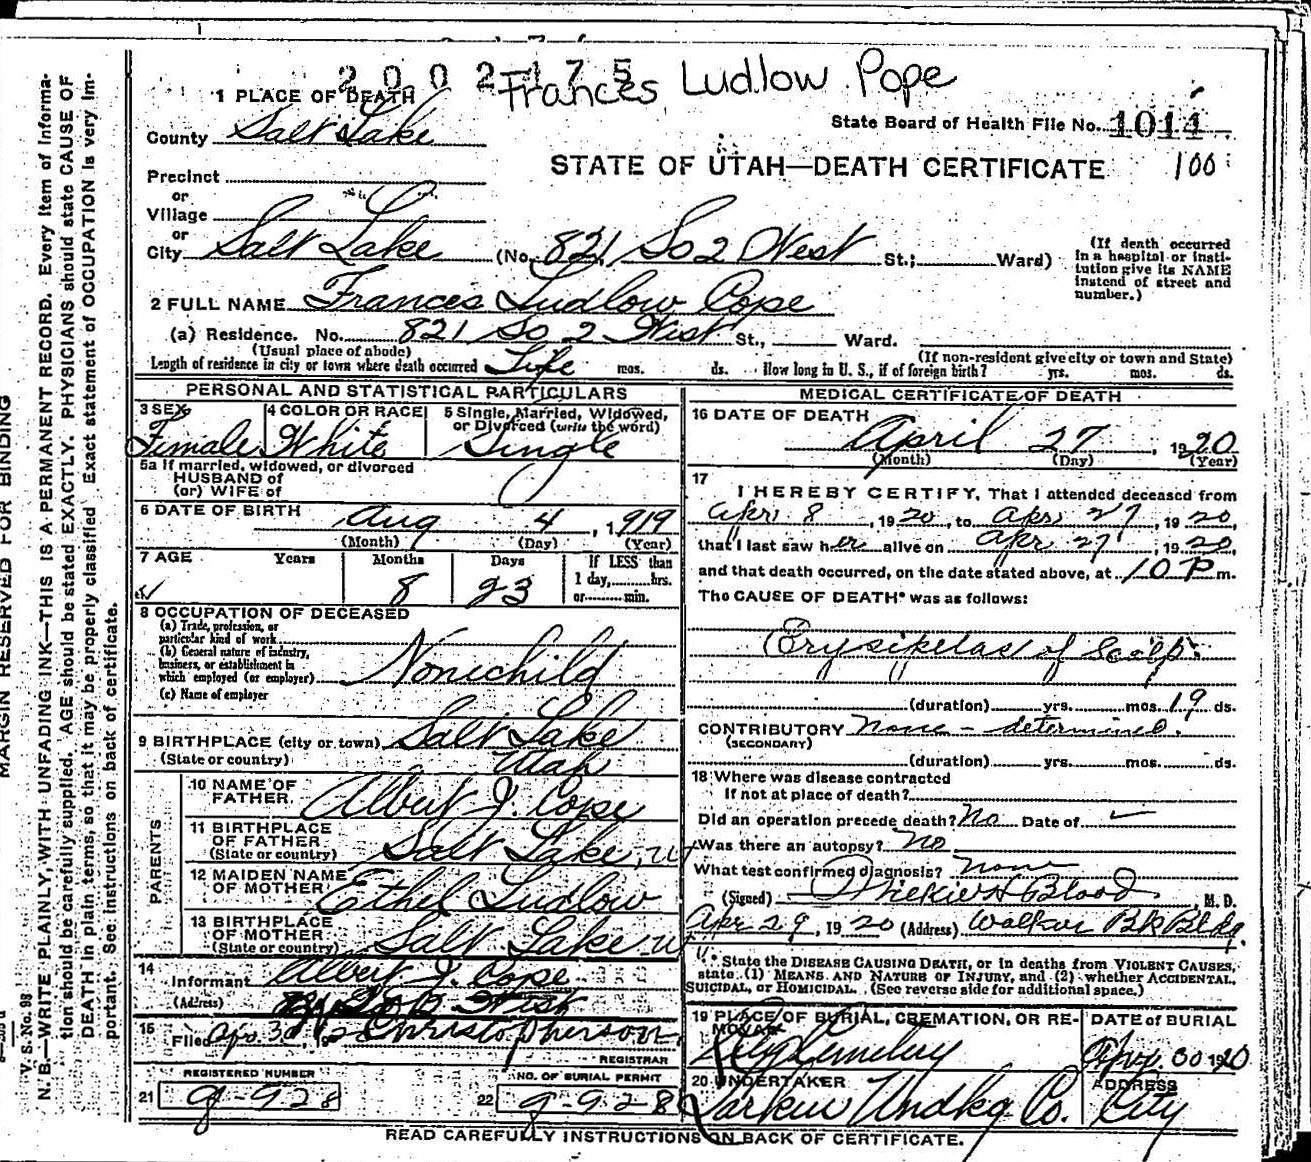 2002175
Frances Ludlow Pope
1 PLACE OF DEATH
County Salt Lake
State Board of Health File No. 1014
STATE OF UTAH—DEATH CERTIFICATE 100
Precinct
or
Village
or
City Salt Lake (No. 821 So 2 West St.; Ward)
(If death occurred in a hospital or institution give its NAME instead of street and number.)
2 FULL NAME Frances Ludlow Pope
(a) Residence. No. 821 So 2 West St., Ward.
(Usual place of abode) (If non-resident give city or town and State)
Length of residence in city or town where death occurred Life mos. ds. How long in U. S., if of foreign birth? yrs. mos. ds.
PERSONAL AND STATISTICAL PARTICULARS
3 SEX Female
4 COLOR OR RACE White
5 Single, Married, Widowed, or Divorced (write the word) Single
5a If married, widowed, or divorced
HUSBAND of
(or) WIFE of
6 DATE OF BIRTH Aug 4, 1919
(Month) (Day) (Year)
7 AGE Years Months Days If LESS than
8 23 1 day, hrs.
or min.
8 OCCUPATION OF DECEASED
(a) Trade, profession, or
particular kind of work
(b) General nature of industry,
business, or establishment in
which employed (or employer) None child
(c) Name of employer
9 BIRTHPLACE (city or town) Salt Lake
(State or country) Utah
PARENTS
10 NAME OF FATHER Albert J. Pope
11 BIRTHPLACE OF FATHER
(State or country) Salt Lake, Ut
12 MAIDEN NAME OF MOTHER Ethel Ludlow
13 BIRTHPLACE OF MOTHER
(State or country) Salt Lake Ut
14
Informant Albert J. Pope
(Address) West
15
Filed Apr 30, 192 Christopherson
REGISTRAR
REGISTERED NUMBER
21 g-928
NO. OF BURIAL PERMIT
22 g-928
MEDICAL CERTIFICATE OF DEATH
16 DATE OF DEATH April 27, 1920
(Month) (Day) (Year)
17
I HEREBY CERTIFY, That I attended deceased from
Apr 8, 1920, to Apr 27, 1920,
that I last saw her alive on Apr 27, 1920,
and that death occurred, on the date stated above, at 10 P m.
The CAUSE OF DEATH* was as follows:
Erysipelas of Scalp.
(duration) yrs. mos. 19 ds.
CONTRIBUTORY none - determined.
(SECONDARY)
(duration) yrs. mos. ds.
18 Where was disease contracted
If not at place of death?
Did an operation precede death? No Date of
Was there an autopsy? No
What test confirmed diagnosis? none
(Signed) H Blood, M. D.
Apr 29, 1920 (Address) Walker Bk Bldg.
* State the DISEASE CAUSING DEATH, or in deaths from VIOLENT CAUSES,
state (1) MEANS AND NATURE OF INJURY, and (2) whether ACCIDENTAL,
SUICIDAL, or HOMICIDAL. (See reverse side for additional space.)
19 PLACE OF BURIAL, CREMATION, OR REMOVAL
City Cemetery
DATE of BURIAL
Apr 30 1920
20 UNDERTAKER
Larkin Undkg Co.
ADDRESS
City
READ CAREFULLY INSTRUCTIONS ON BACK OF CERTIFICATE.
MARGIN RESERVED FOR BINDING
V. S. No. 98
N. B.—WRITE PLAINLY, WITH UNFADING INK—THIS IS A PERMANENT RECORD. Every item of information
should be carefully supplied. AGE should be stated EXACTLY. PHYSICIANS should state CAUSE OF
DEATH in plain terms, so that it may be properly classified. Exact statement of OCCUPATION is very important.
See instructions on back of certificate.